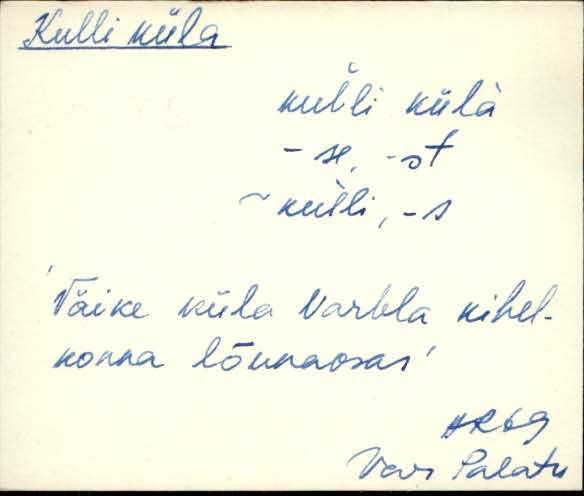 Kulli küla
kulli külà
- se, -st
~ kulli, -s
'Väike küla Varbla kihel-
konna lõunaosas'
AR69
Var Palatu